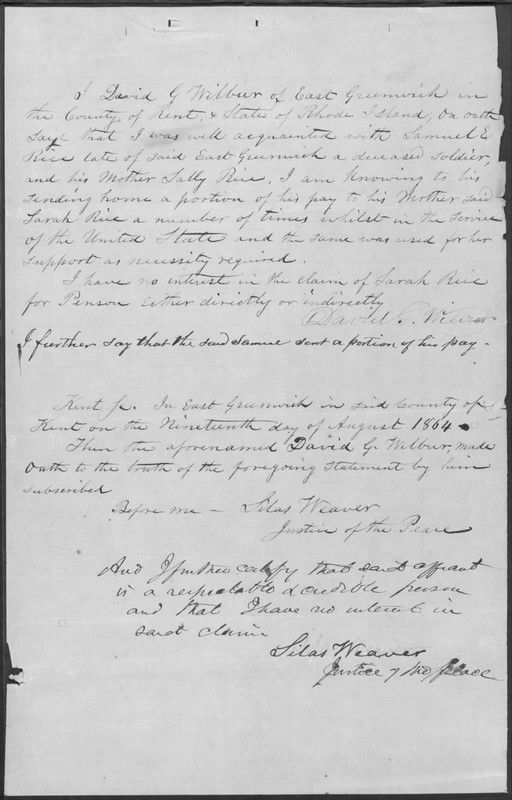 I David G Wilbur of East Greenwich in
the County of Kent, & State of Rhode Island, On oath
says that I was well acquainted with Samuel E
Rice late of said East Greenwich a deceased soldier,
and his Mother Sally Rice, I am Knowing to his
sending home a portion of his pay to his Mother said
Sarah Rice a number of times whilst in the service
of the United State and the same was used for her
support as necessity required.
I have no interest in the claim of Sarah Rice
for Penson either directly or indirectly
David G. Wilbur
I further say that the said Samuel sent a portion of his pay.
Kent Sc. In East Greenwich in said County of
Kent on the Nineteenth day of August 1864
Then the aforenamed David G. Wilbur, made
Oath to the truth of the foregoing Statement by him
subscribed
Before me - Silas Weaver
Justice of the Peace
And I further certify that said affiant
is a respectable & credible person
and that I have no interest in
said claim
Silas Weaver
Justice of the peace